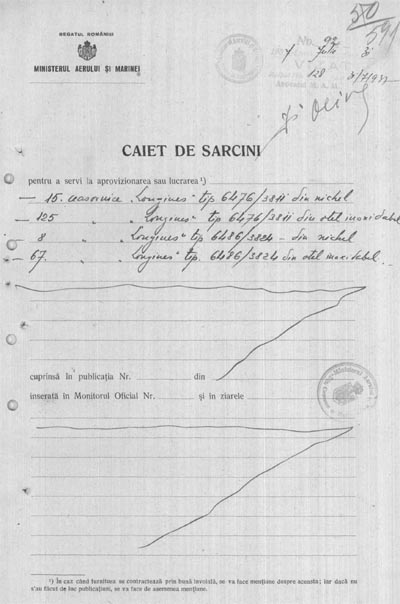 580
591
REGATUL ROMÂNIEI
MINISTERUL AERULUI ȘI MARINEI
No. 92
128
CAIET DE SARCINI
pentru a servi la aprovizionarea sau lucrarea ¹)
— 15. ceasornice „Longines" tip 6476/3811 din nichel
— 125 „ „Longines" tip 6476/3811 din oțel inoxidabil
— 8 „ „Longines" tip 6486/3824 – din nichel
— 67. „ „Longines" tip. 6486/3824 din oțel inoxidabil.
cuprinsă în publicația Nr. din
inserată în Monitorul Oficial Nr. și în ziarele
¹) În caz când furnitura se contractează prin bună învoială, se va face mențiune despre aceasta; iar dacă nu
s'au făcut de loc publicațiuni, se va face de asemenea mențiune.